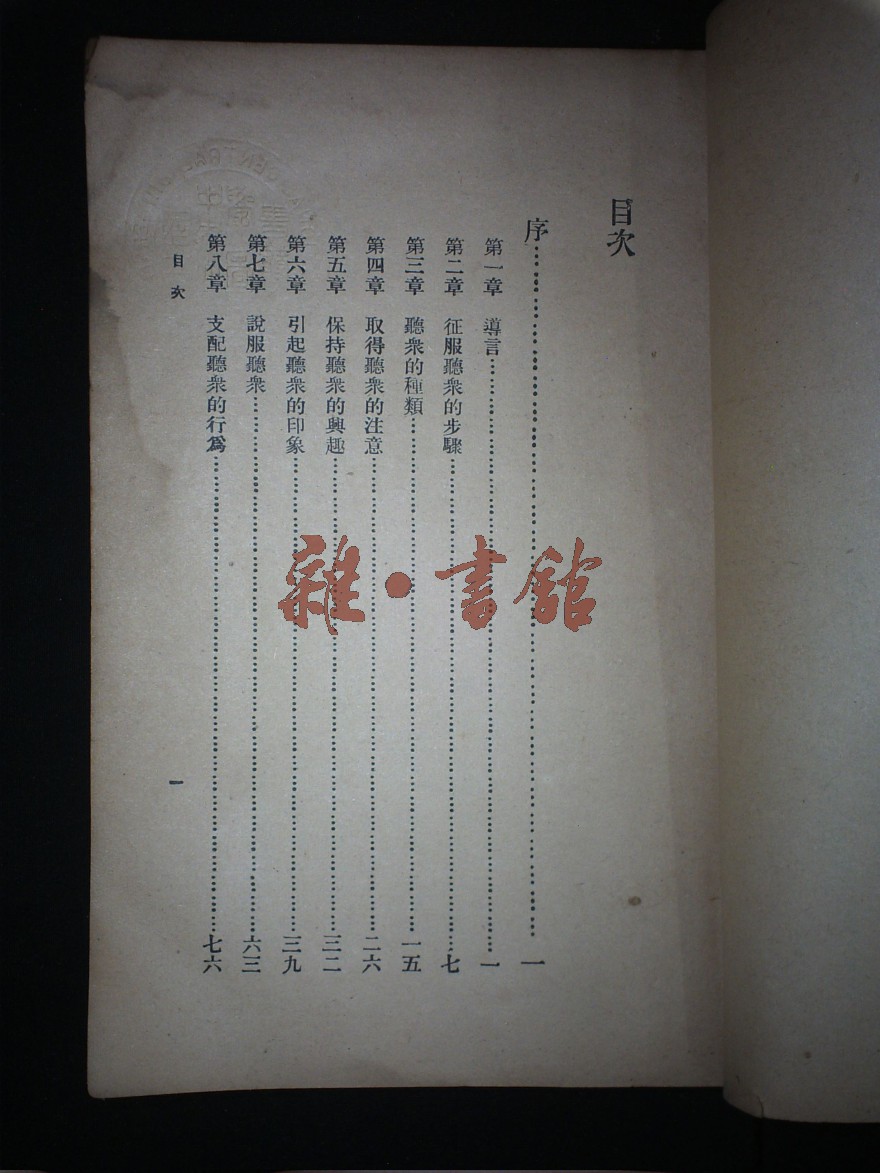 目次
序……一
第一章 導言……一
第二章 征服聽衆的步驟……七
第三章 聽衆的種類……一五
第四章 取得聽衆的注意……二六
第五章 保持聽衆的興趣……三二
第六章 引起聽衆的印象……三九
第七章 說服聽衆……六三
第八章 支配聽衆的行爲……七六
目次 一
雜·書館